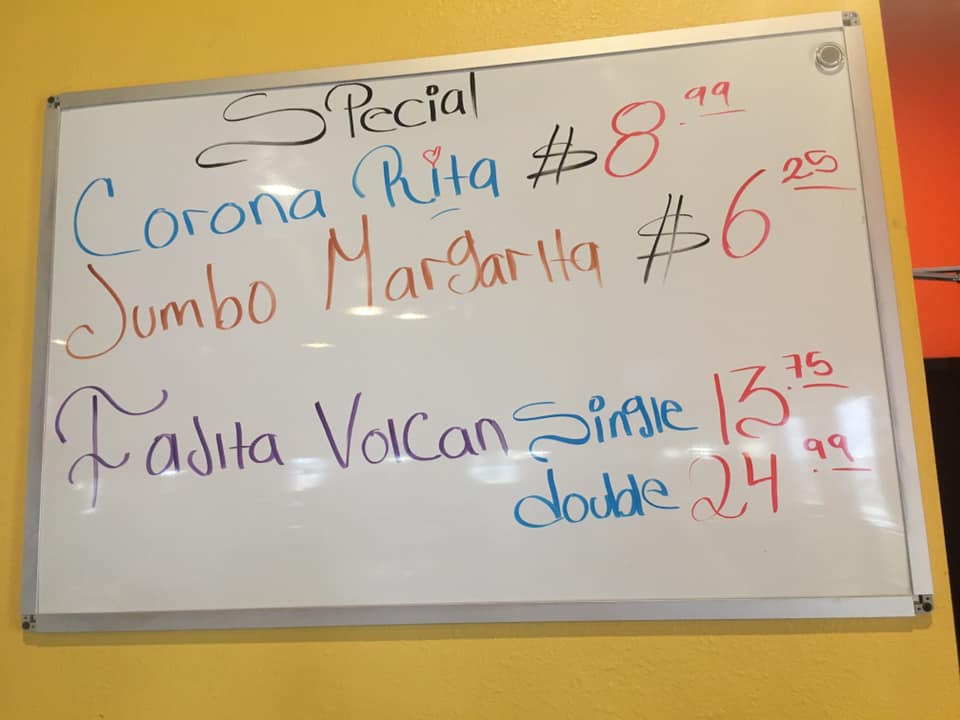 Special
Corona Rita $8.99
Jumbo Margarita $6 25
Fajita Volcan Single 13.75
double 24.99